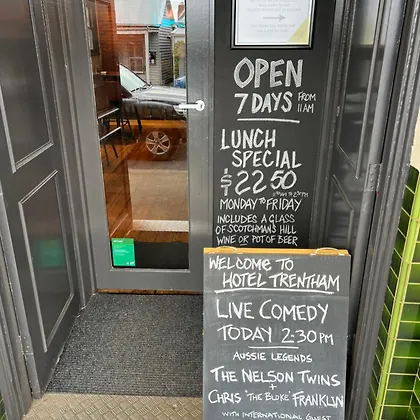 OPEN
7 DAYS FROM
11AM
LUNCH
SPECIAL
$22.50
MONDAY TO FRIDAY
INCLUDES A GLASS
OF SCOTCHMAN'S HILL
WINE OR POT OF BEER
WELCOME TO
HOTEL TRENTHAM
LIVE COMEDY
TODAY 2:30PM
AUSSIE LEGENDS
THE NELSON TWINS
+
CHRIS "THE BLOKE" FRANKLIN
WITH INTERNATIONAL GUEST